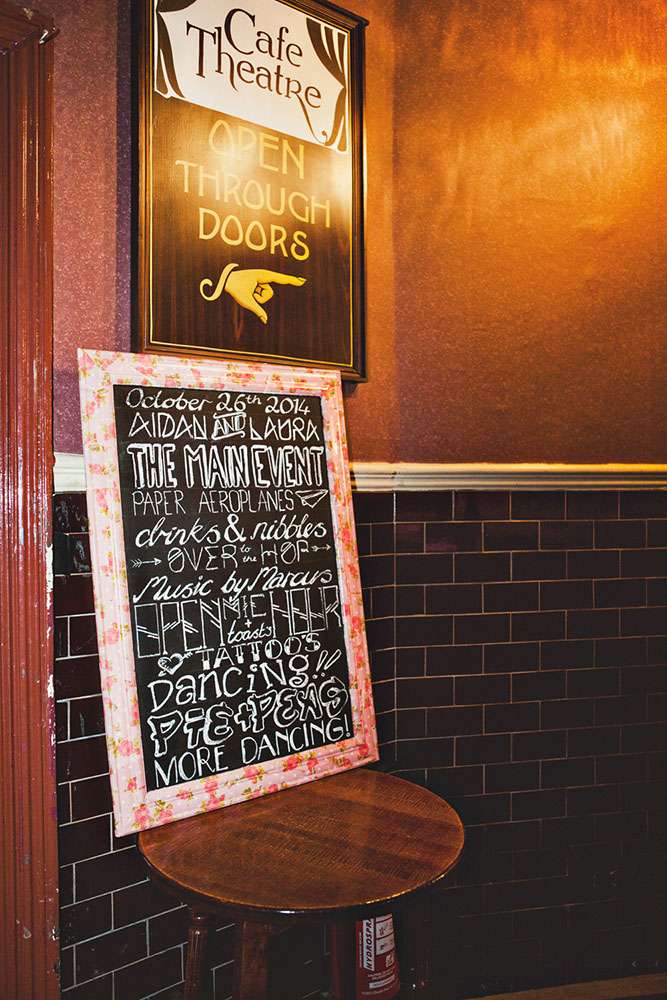 Cafe
Theatre
OPEN
THROUGH
DOORS
October 26th 2014
AIDAN AND LAURA
THE MAIN EVENT
PAPER AEROPLANES
drinks & nibbles
OVER to the HOP
Music by Marcus
OPEN MIC HOUR
+ toasts
TATTOO'S
Dancing!!
PIE + PEAS
MORE DANCING!
HYDROSPRAY